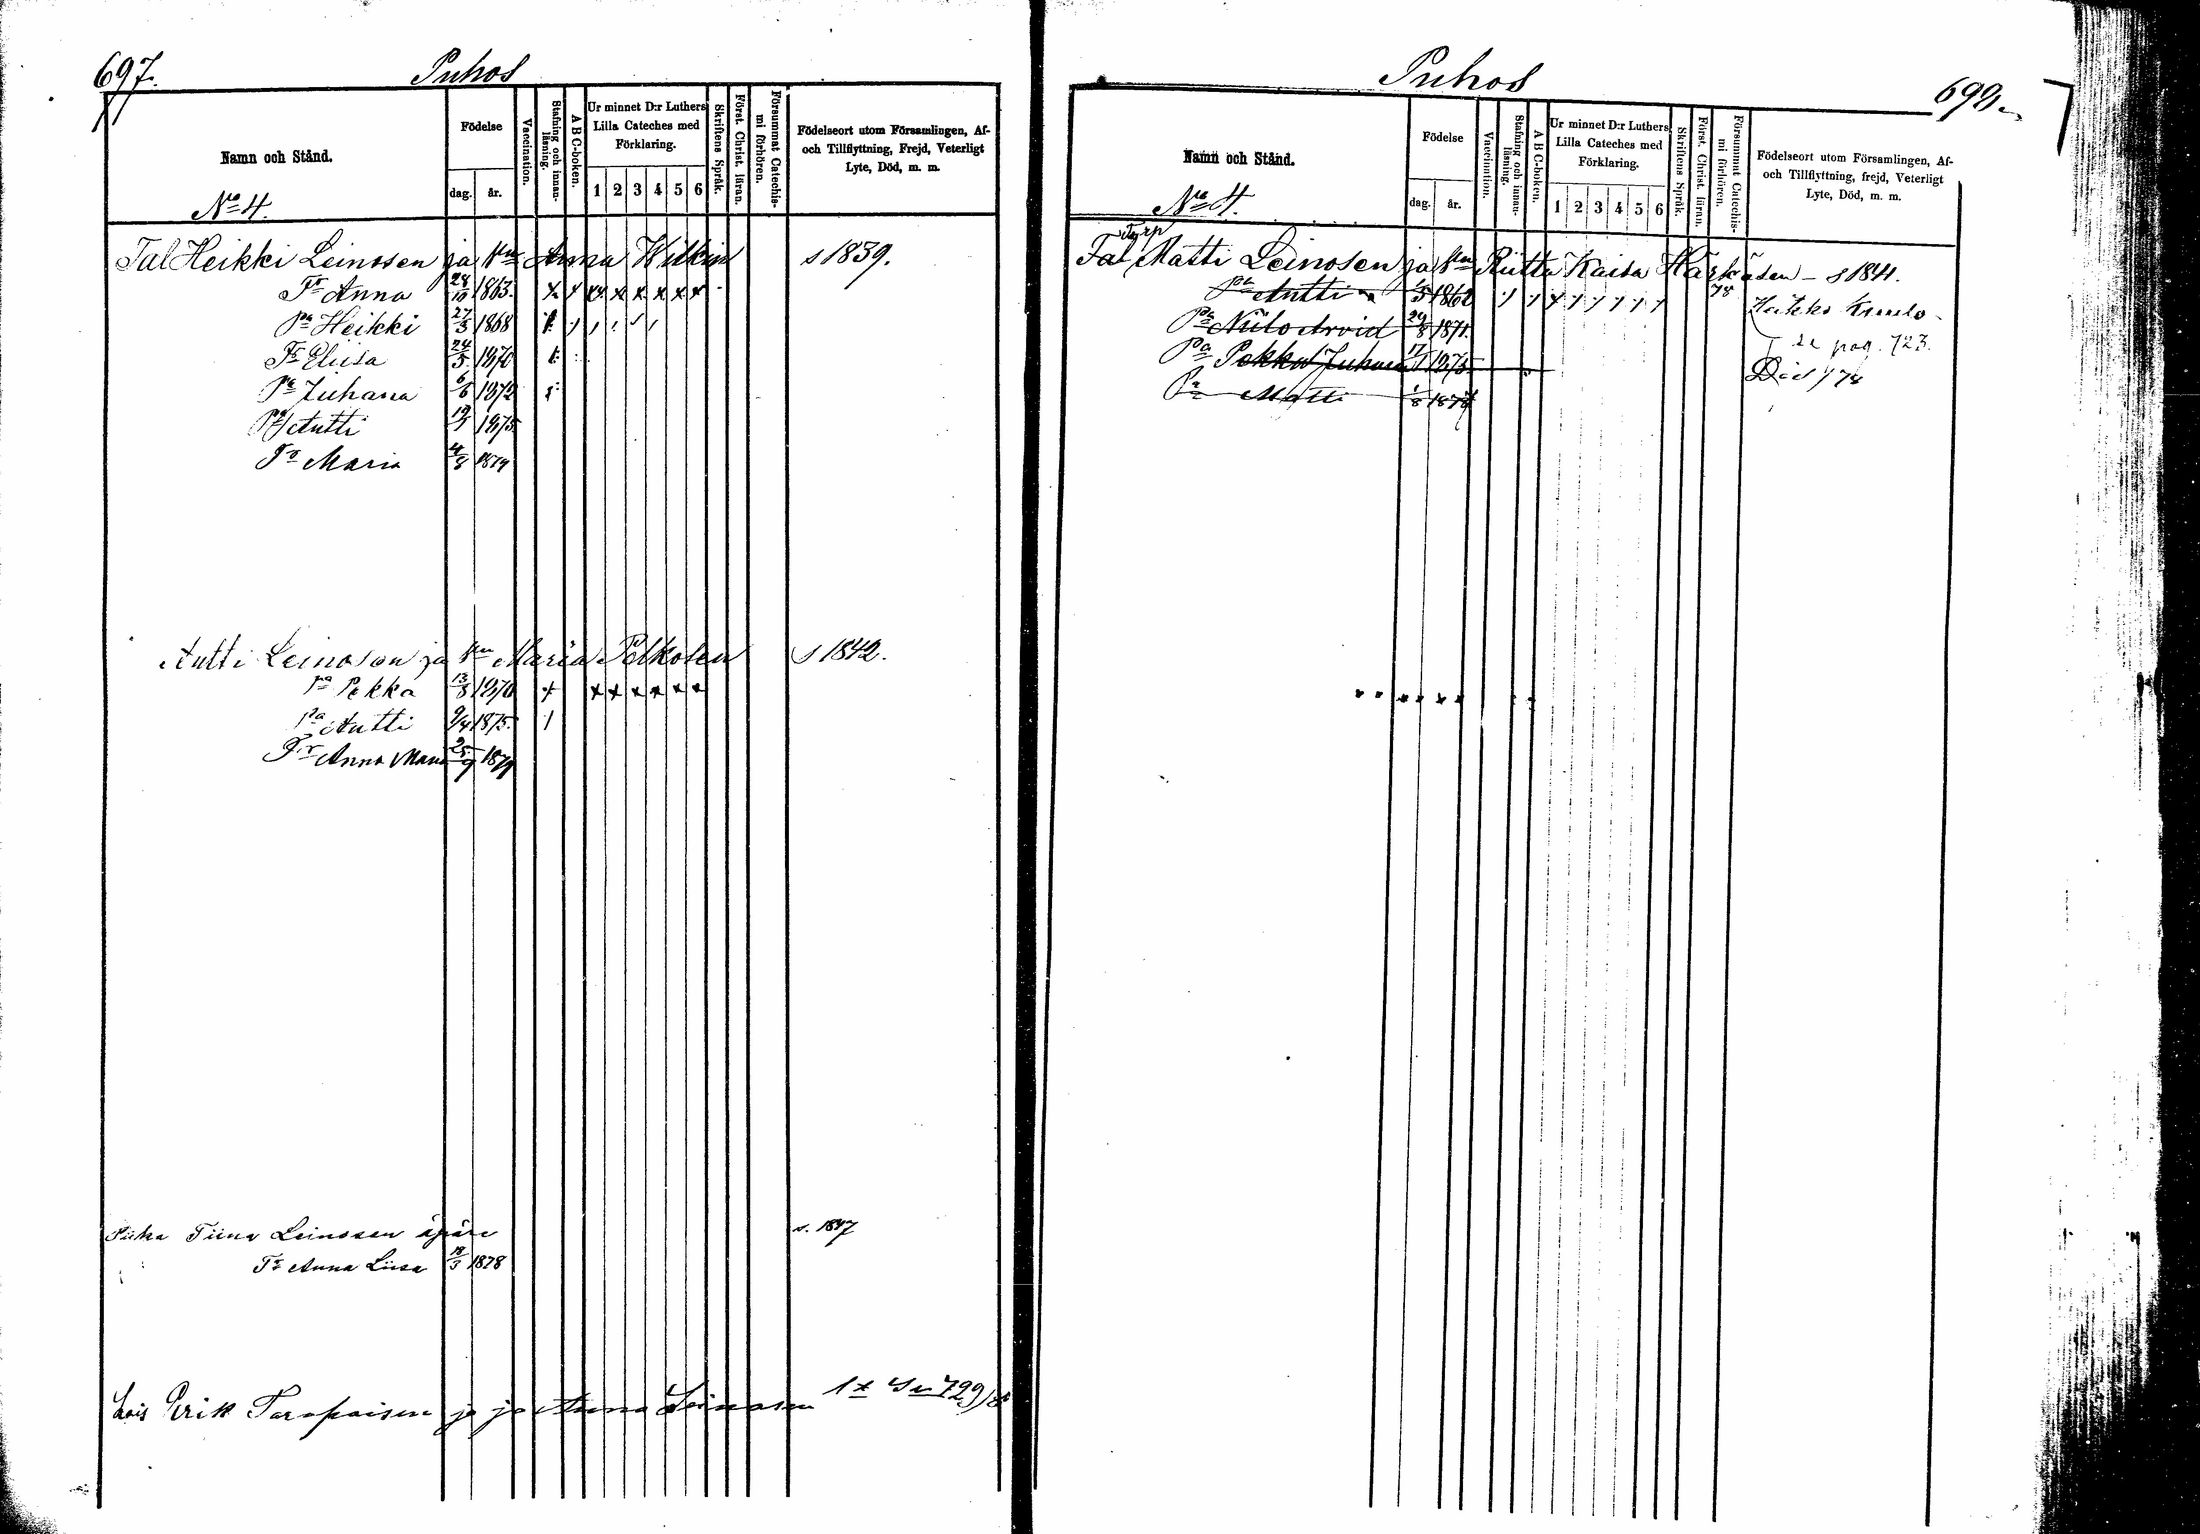 697.
Puhos
Namn och Stånd.
Födelse
dag.
år.
Vaccination.
Stafning och innan-
läsning.
A B C-boken.
Ur minnet D:r Luthers
Lilla Cateches med
Förklaring.
1 2 3 4 5 6
Skriftens Språk.
Först. Christ. läran.
Försummat Catechis-
mi förhören.
Födelseort utom Församlingen, Af-
och Tillflyttning, Frejd, Veterligt
Lyte, Död, m. m.
No 4.
Tal Heikki Leinosen ja Vm Anna s 1839.
Tr Anna 24/10 1863.
Pa Heikki 27/3 1868
Tr Eliisa 24/5 1870
Pa Juhana 6/6 1872
Pa Antti 1875.
Tr Maria 4/8 1879
Antti Leinosen ja Vm Maria Polkosen s 1842.
Pa Pekka 13/8 1870
Pa Antti 9/4 1875.
Tr Anna Maria 25/9 1879
Piika Tiina Leinosen äpäre s. 1847
Tr Anna Liisa 18/3 1878
Lois Erik Tarapaisen ja Anna Leinosen 729/
Puhos
699
Namn och Stånd.
Födelse
dag.
år.
Vaccination.
Stafning och innan-
läsning.
A B C-boken.
Ur minnet D:r Luthers
Lilla Cateches med
Förklaring.
1 2 3 4 5 6
Skriftens Språk.
Först. Christ. läran.
Försummat Catechis-
mi förhören.
Födelseort utom Församlingen, Af-
och Tillflyttning, frejd, Veterligt
Lyte, Död, m. m.
No 4.
Torp
Tal Matti Leinosen ja Vm Riitta Kaisa Härkösen - s 1841.
Pa Antti 1862 78
Pa Niilo Arvid 24/8 1871.
Pa Pekka Juhana 17/1 1875
se pag. 723.
Pa Matti 1/8 1878
Död 78